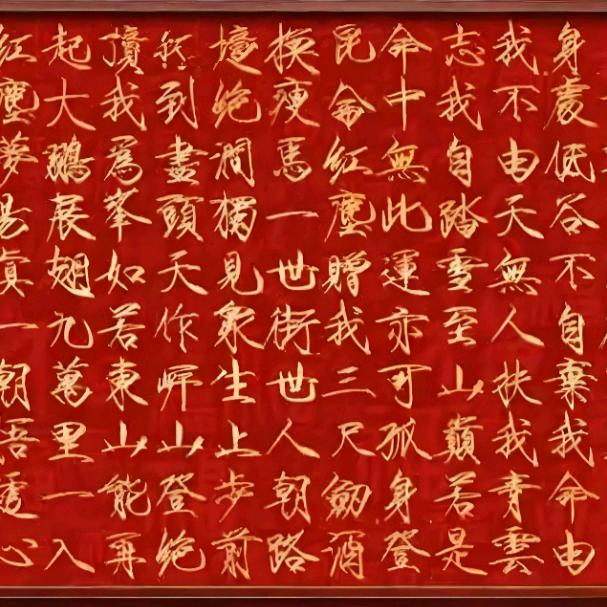 身處低谷不自棄我命由
我不由天無人扶我青雲
志我自踏雪至山巔若是
命中無此運亦可孤身登
昆侖紅塵贈我三尺劍酒
換瘦馬一世街世人朝路
境絕澗獨見眾生上步前
行到盡頭天作岸山登絕
頂我為峯如若東山能再
起大鵬展翅九萬里一入
紅塵夢易真一朝悟透心